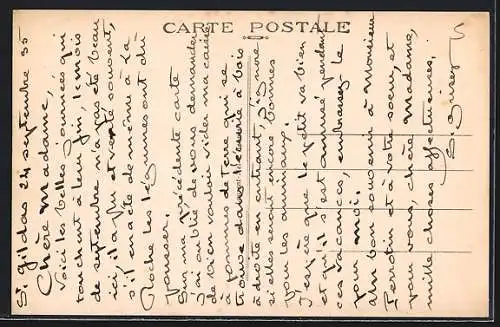 CARTE POSTALE
5
St gildas 24 septembre 35
Chère Madame,
Voici les belles journées qui
touchent à leur fin, le mois
de septembre n'a pas été beau
ici, il a plu et venté souvent,
s'il en a été de même à La
Roche les légumes ont dû
pousser.
Sur ma précédente carte
j'ai oublié de vous demander
de bien vouloir vider ma caisse
à pommes de terre qui se
trouve dans le à bois
à droite en entrant, j'ignore
si elles seront encore bonnes
pour les animaux.
J'espère que le petit va bien
et qu'il s'est amusé pendant
ces vacances, embrassez-le
pour moi.
Un bon souvenir à Monsieur
Perrotin et à votre sœur, et
pour vous, chère Madame,
mille choses affectueuses.